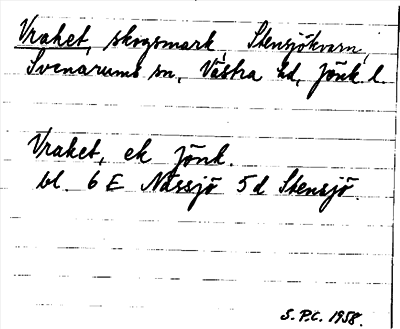 Vraket, skogsmark, Stensjökvarn,
Svenarums sn, Västra hd, Jönk. l.
Vraket, ek Jönk.
bl. 6 E Nässjö 5 d Stensjö.
S.P.C. 1958.